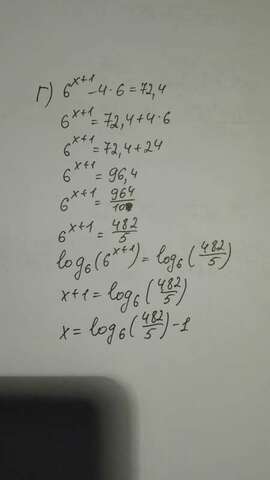 г) 6^{x+1} - 4·6 = 72,4
6^{x+1} = 72,4 + 4·6
6^{x+1} = 72,4 + 24
6^{x+1} = 96,4
6^{x+1} = 964/10
6^{x+1} = 482/5
log₆(6^{x+1}) = log₆(482/5)
x+1 = log₆(482/5)
x = log₆(482/5) - 1